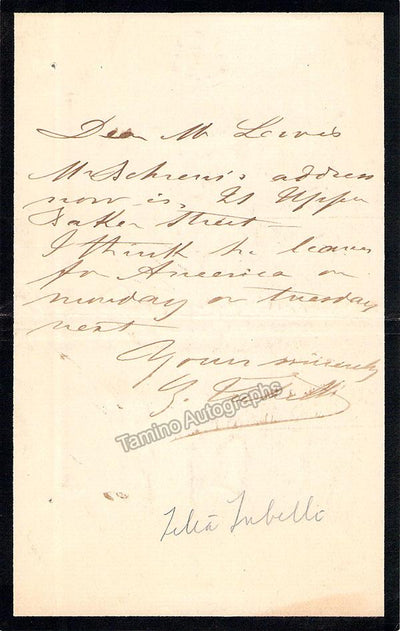 Dear Mr Lewis
Mr Schrens's address
now is, 21 Upper
Baker Street.
I think he leaves
for America on
monday or tuesday
next
Yours sincerely
Z.
Tamino Autographs
Zelia Trebelli